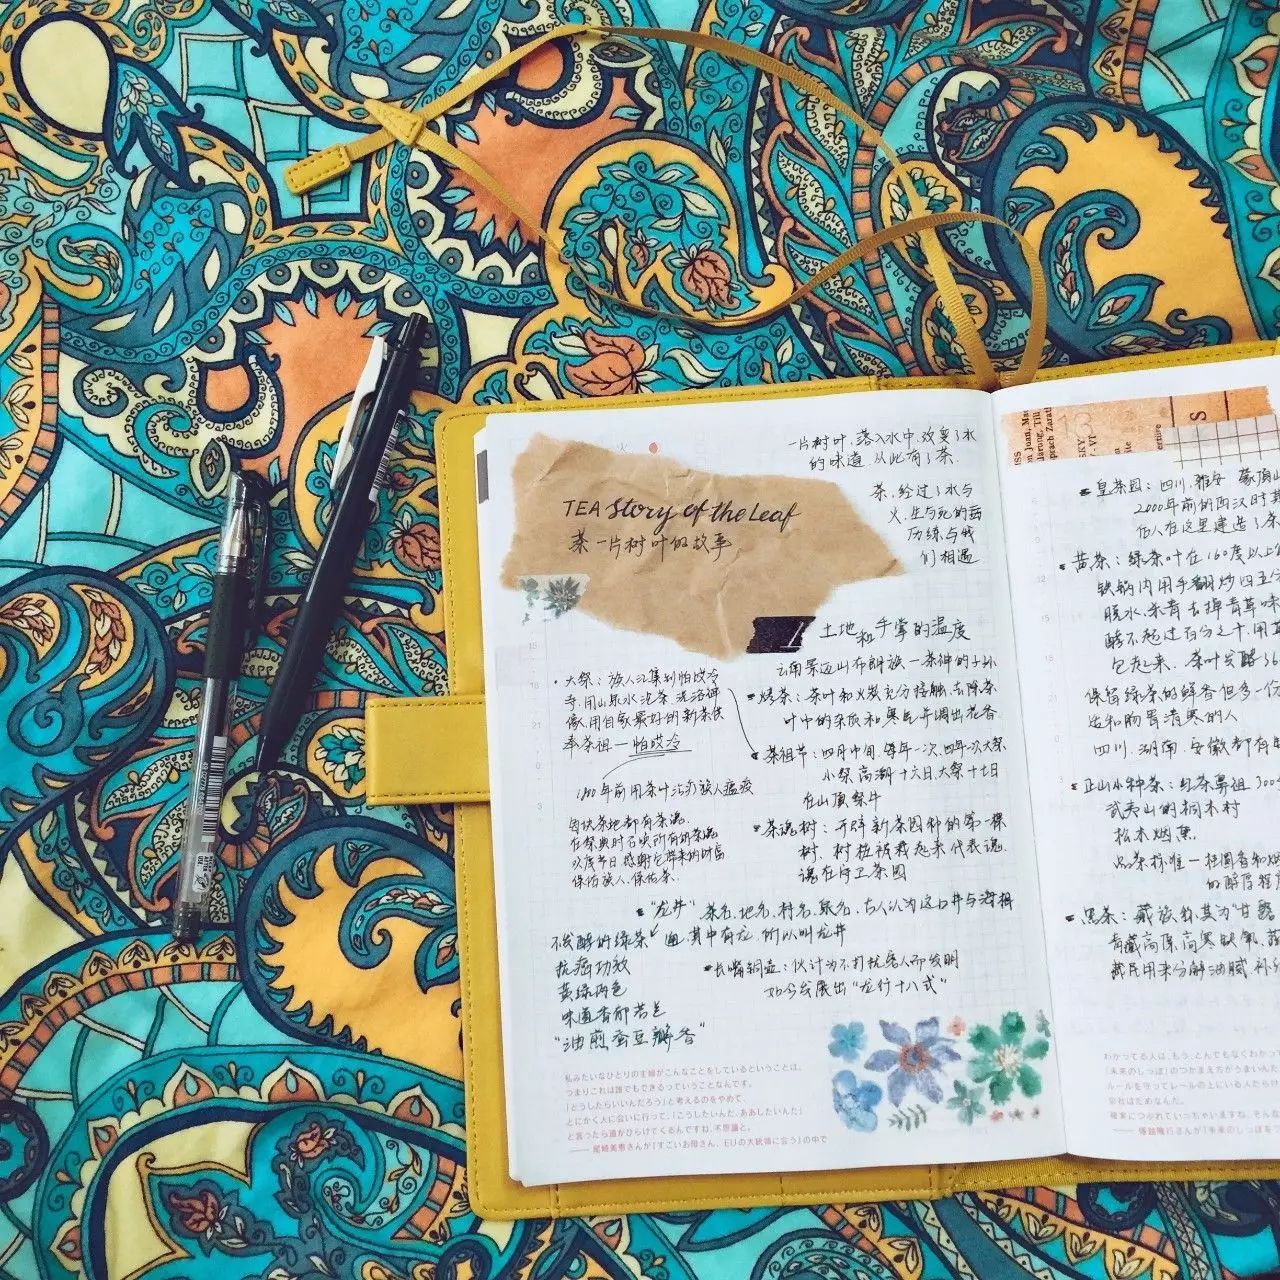 TEA Story of the Leaf
茶 一片树叶的故事
一片树叶,落入水中,改变了水
的味道,从此有了茶.
茶,经过了水与
火,生与死的
历练与我
们相遇
土地和手掌的温度
云南景迈山布朗族一茶神的子孙
•大祭:族人汇集到帕哎冷
寺,用山泉水沱茶,洗浴神
像,用自家最好的新茶供
奉茶祖一帕哎冷
1800年前用茶叶治疗族人瘟疫
每块茶地都有茶魂
在祭典时召唤所有的茶魂
以茂节日,感谢它带来的财富
保佑族人,保佑茶.
•烤茶:茶叶和火炭充分接触,去除茶
叶中的杂质和寒气并调出花香
•茶祖节:四月中间,每年一次,四年一次大祭
小祭高潮十六日,大祭十七日
在山顶祭牛
•茶魂树:开辟新茶园种的第一棵
树,树枝被栽起来代表魂
魂在守卫茶园
•"龙井"茶名,地名,村名,泉名,古人认为这口井与海相
通,其中有龙,所以叫龙井
不发酵的绿茶
抗癌功效
黄绿两色
味道香郁若兰
"油煎蚕豆瓣香"
•长嘴铜壶:伙计为不打扰客人而发明
如今发展出"龙行十八式"
私みたいなひとりの主婦がこんなことをしているということは、
つまりこれは誰でもできるっていうことなんです。
「どうしたらいいんだろう」と考えるのをやめて、
とにかく人に会いに行って、「こうしたいんだ、ああしたいんだ」
と言ったら道がひらけてくるんですね、不思議と。
——尾崎美恵さんが『すごいお母さん、EUの大統領に会う』の中で
13
•皇茶园:四川,雅安 蒙顶山
2000年前的西汉时
们人在这里建造了茶
•黄茶:绿茶叶在160度以上
铁锅内用手翻炒四五分
脱水,杀青去掉青草味
酵不超过百分之十,用
包起来、茶叶发酵36
保留绿茶的鲜香但多一份
适和肠胃清寒的人
四川,湖南,安徽都有
•正山小种茶:红茶鼻祖 300
武夷山的桐木村
松木烟熏
出茶标准一桂圆香和烟
的醇厚程度
•黑茶:藏族称其为"甘露
青藏高原高寒缺氧,蔬
藏民用来分解油腻,补
わかってる人は、もう、とんでもなくわかっ
「未来のしっぽ」のつかまえ方がうまいんだ
ルールを守ってレールの上にいる人たち
会社はだめなんだ。